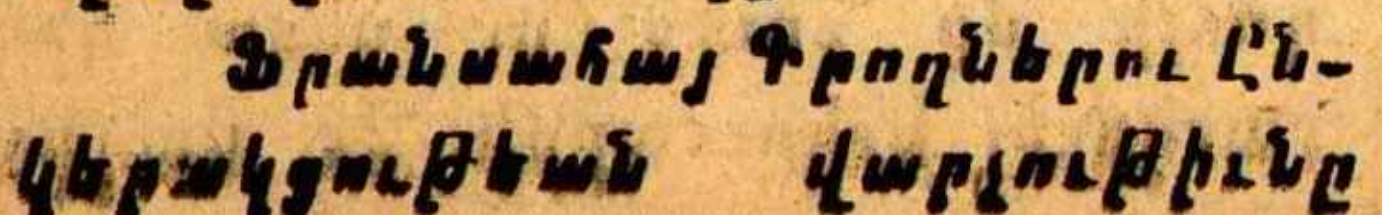 Ֆրանսահայ Գրողներու Ըն-
կերակցութեան վարչութիւնը